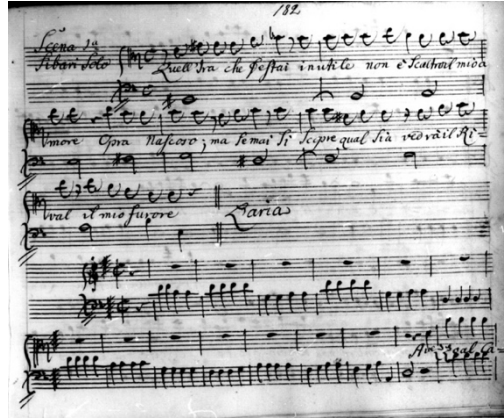 182
Scena 1a
Sibari Solo
Quell' Ira che destai inutile non è Scaltro il mio a
more Opra nascoso; ma se mai si scopre qual sia vedrà il Ri-
val il mio furore L'aria